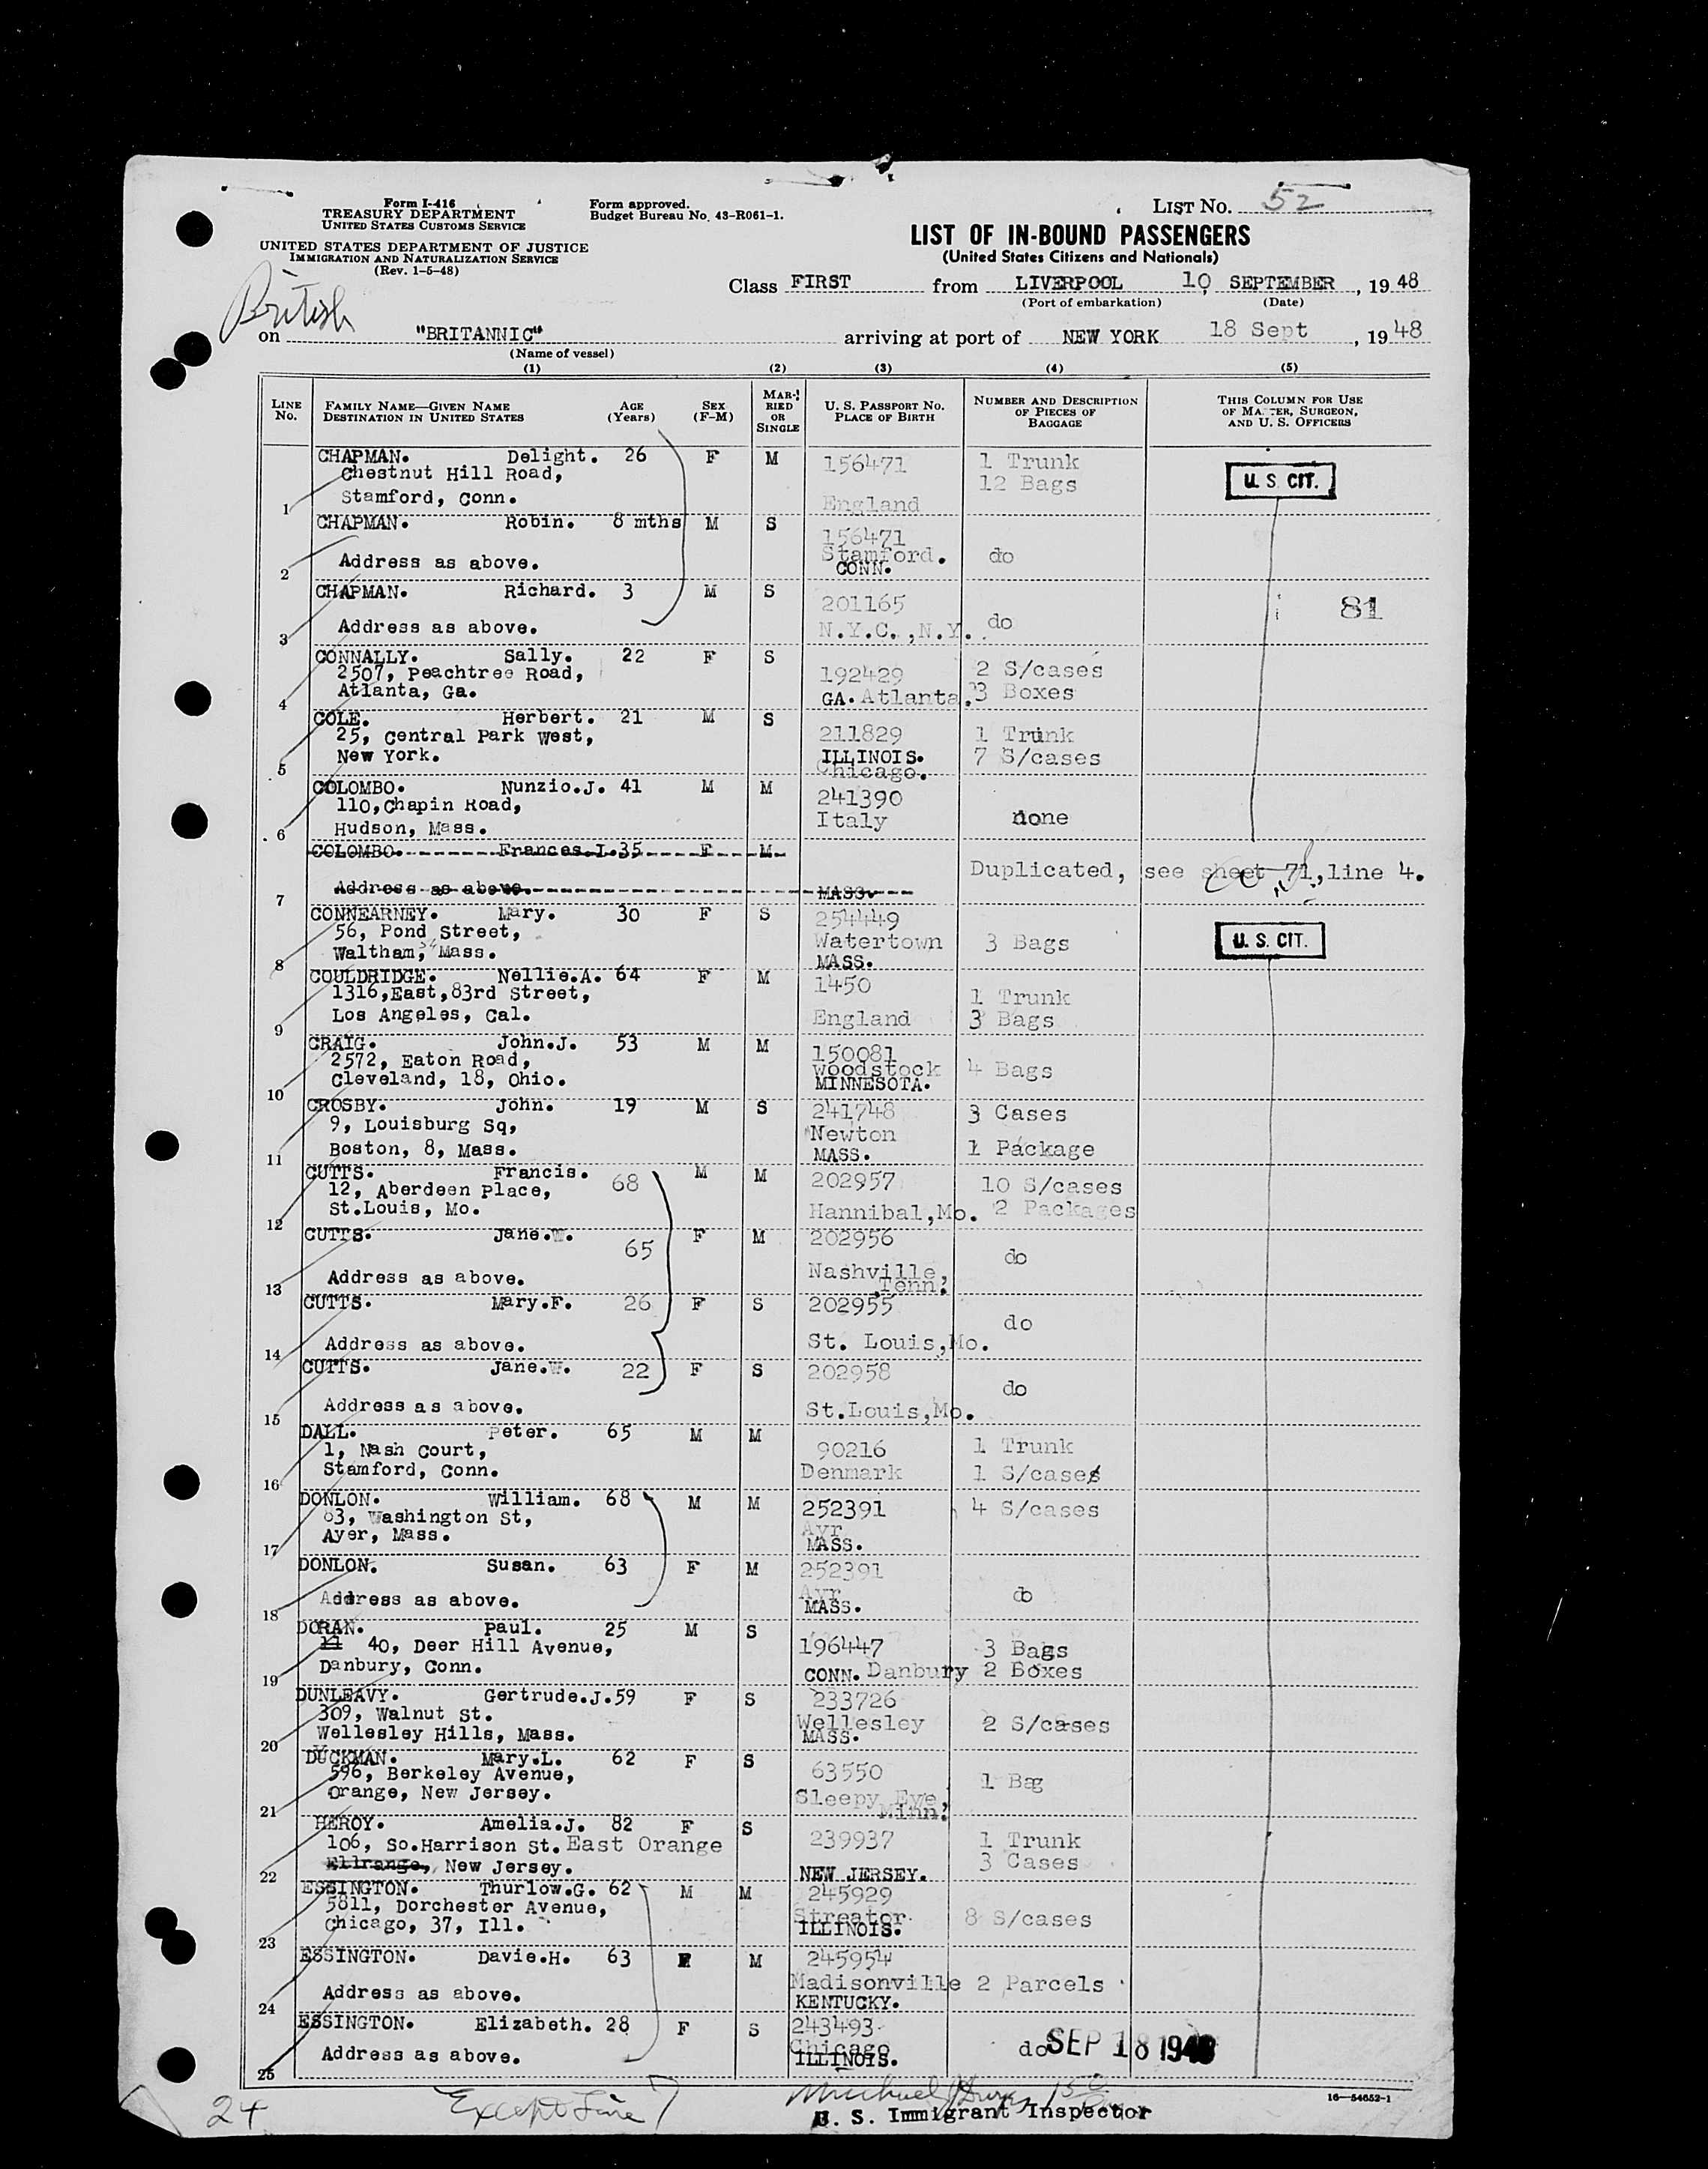 Form I-416
TREASURY DEPARTMENT
UNITED STATES CUSTOMS SERVICE
UNITED STATES DEPARTMENT OF JUSTICE
IMMIGRATION AND NATURALIZATION SERVICE
(Rev. 1-5-48)
Form approved.
Budget Bureau No. 43-R061-1.
LIST NO. 52
LIST OF IN-BOUND PASSENGERS
(United States Citizens and Nationals)
Class FIRST from LIVERPOOL 10, SEPTEMBER, 1948
(Port of embarkation) (Date)
British
on "BRITANNIC" arriving at port of NEW YORK 18 Sept, 1948
(Name of vessel)
(1) (2) (3) (4) (5)
LINE NO. FAMILY NAME—GIVEN NAME DESTINATION IN UNITED STATES AGE (Years) SEX (F-M) MARRIED OR SINGLE U. S. PASSPORT NO. PLACE OF BIRTH NUMBER AND DESCRIPTION OF PIECES OF BAGGAGE THIS COLUMN FOR USE OF MASTER, SURGEON, AND U. S. OFFICERS
CHAPMAN. Delight. 26 F M 156471 1 Trunk
Chestnut Hill Road, 12 Bags U. S. CIT.
1 Stamford, Conn. England
CHAPMAN. Robin. 8 mths M S 156471
Stamford.
2 Address as above. CONN. do
CHAPMAN. Richard. 3 M S 201165 81
3 Address as above. N.Y.C.,N.Y. do
CONNALLY. Sally. 22 F S
2507, Peachtree Road, 192429 2 S/cases
4 Atlanta, Ga. GA. Atlanta. 3 Boxes
COLE. Herbert. 21 M S
25, Central Park West, 211829 1 Trunk
5 New York. ILLINOIS. 7 S/cases
Chicago.
COLOMBO. Nunzio.J. 41 M M 241390
110,Chapin Road, Italy none
6 Hudson, Mass.
COLOMBO. Frances.I. 35 F M
Duplicated, see sheet 71, line 4.
7 Address as above. MASS.
CONNEARNEY. Mary. 30 F S 254449
56, Pond Street, Watertown 3 Bags U. S. CIT.
8 Waltham, 54 Mass. MASS.
COULDRIDGE. Nellie.A. 64 F M 1450
1316,East,83rd Street, 1 Trunk
9 Los Angeles, Cal. England 3 Bags
CRAIG. John.J. 53 M M 150081
2572, Eaton Road, Woodstock 4 Bags
10 Cleveland, 18, Ohio. MINNESOTA.
CROSBY. John. 19 M S 241748 3 Cases
9, Louisburg Sq, Newton
11 Boston, 8, Mass. MASS. 1 Package
CUTTS. Francis. 68 M M 202957 10 S/cases
12, Aberdeen Place,
12 St.Louis, Mo. Hannibal,Mo. 2 Packages
CUTTS. Jane.W. 65 F M 202956 do
13 Address as above. Nashville, Tenn.
CUTTS. Mary.F. 26 F S 202955 do
14 Address as above. St. Louis,Mo.
CUTTS. Jane.W. 22 F S 202958 do
15 Address as above. St.Louis,Mo.
DALL. Peter. 65 M M
1, Nash Court, 90216 1 Trunk
16 Stamford, Conn. Denmark 1 S/cases
DONLON. William. 68 M M 252391 4 S/cases
83, Washington St, Ayr
17 Ayer, Mass. MASS.
DONLON. Susan. 63 F M 252391
Ayr
18 Address as above. MASS. do
DORAN. Paul. 25 M S
11 40, Deer Hill Avenue, 196447 3 Bags
19 Danbury, Conn. CONN. Danbury 2 Boxes
DUNLEAVY. Gertrude.J. 59 F S 233726
309, Walnut St. Wellesley 2 S/cases
20 Wellesley Hills, Mass. MASS.
DUCKMAN. Mary.L. 62 F S
596, Berkeley Avenue, 63550 1 Bag
21 Orange, New Jersey. Sleepy Eye, Minn.
HEROY. Amelia.J. 82 F S
106, So.Harrison St. East Orange 239937 1 Trunk
22 New Jersey. NEW JERSEY. 3 Cases
ESSINGTON. Thurlow.G. 62 M M 245929
5811, Dorchester Avenue, Streator 8 S/cases
23 Chicago, 37, Ill. ILLINOIS.
ESSINGTON. Davie.H. 63 F M 245954
Madisonville 2 Parcels
24 Address as above. KENTUCKY.
ESSINGTON. Elizabeth. 28 F S 243493
Chicago
25 Address as above. ILLINOIS. do SEP 18 1948
24 Except Line 7
U. S. Immigrant Inspector
16—54652-1